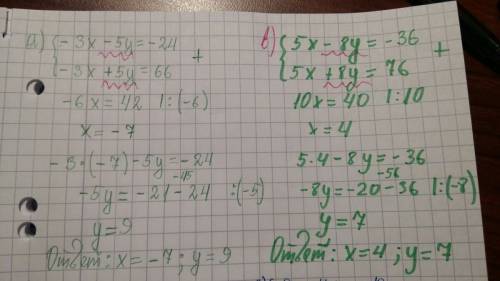 а) { -3x - 5y = -24
-3x + 5y = 66 +
-6x = 42 | : (-6)
x = -7
-3 · (-7) - 5y = -24
-45
-5y = -21 - 24 : (-5)
y = 9
Ответ: x = -7 ; y = 9
в) { 5x - 8y = -36
5x + 8y = 76 +
10x = 40 | : 10
x = 4
5 · 4 - 8y = -36
-56
-8y = -20 - 36 | : (-8)
y = 7
Ответ: x = 4 ; y = 7